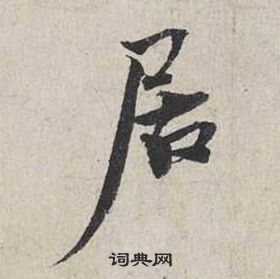 居
词典网